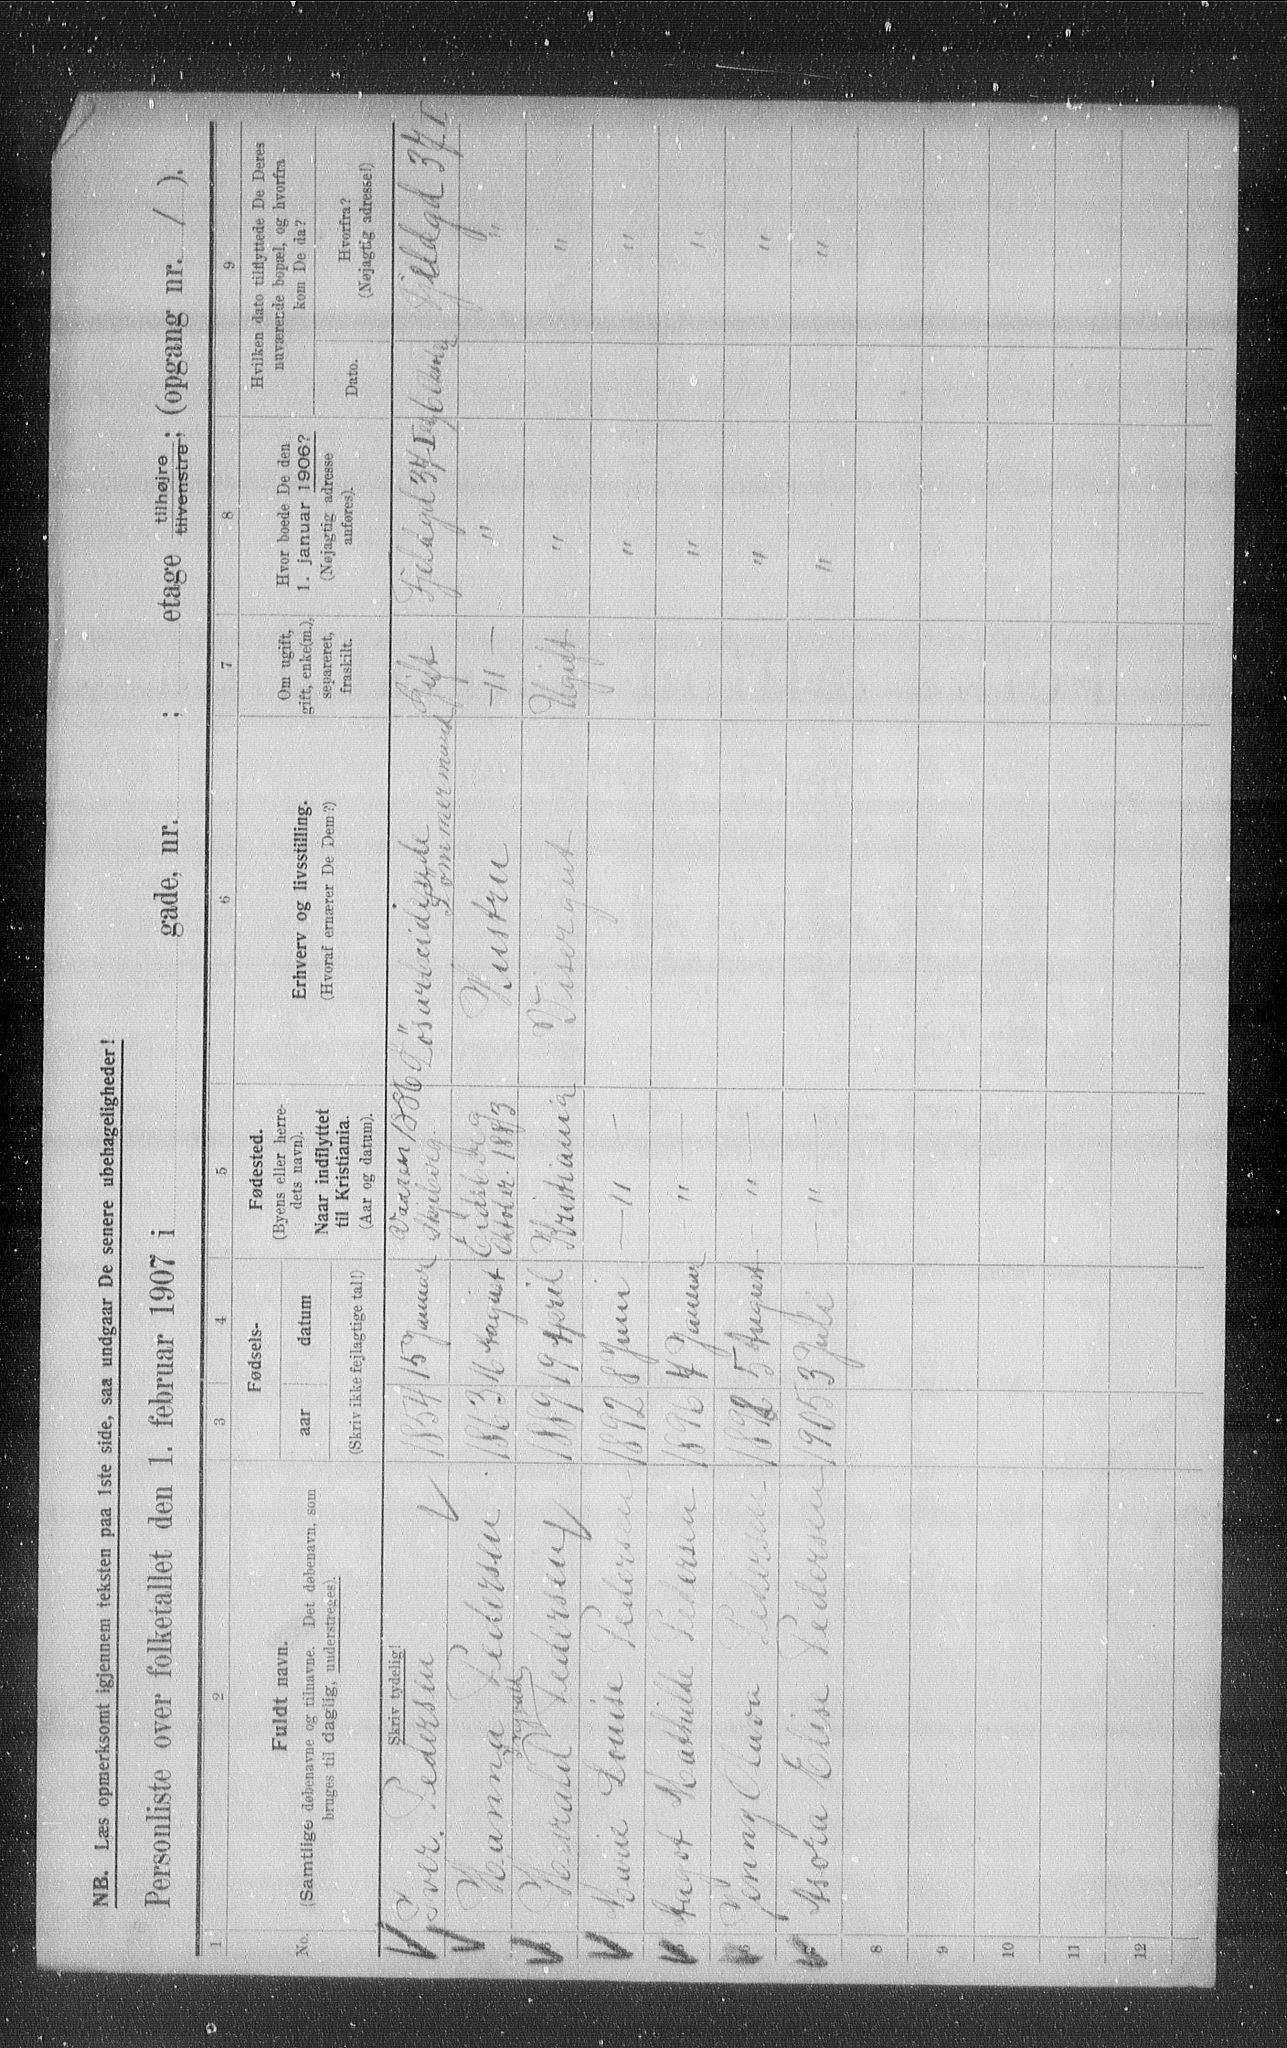 NB. Læs opmerksomt igjennem teksten paa 1ste side, saa undgaar De senere ubehageligheder!
Personliste over folketallet den 1. februar 1907 i gade, nr. ; etage tilhøjre tilvenstre; (opgang nr. / ).
1 2 3 4 5 6 7 8 9
No.
Fuldt navn.
(Samtlige døbenavne og tilnavne. Det døbenavn, som
bruges til daglig, understreges).
Skriv tydelig!
Fødsels-
aar
datum
(Skriv ikke fejlagtige tal!)
Fødested.
(Byens eller herre-
dets navn).
Naar indflyttet
til Kristiania.
(Aar og datum).
Erhverv og livsstilling.
(Hvoraf ernærer De Dem?)
Om ugift,
gift, enke(m.),
separeret,
fraskilt.
Hvor boede De den
1. januar 1906?
(Nøjagtig adresse
anføres).
Hvilken dato tilflyttede De Deres
nuværende bopæl, og hvorfra
kom De da?
Dato.
Hvorfra?
(Nøjagtig adresse!)
Iver Pedersen 1854 15 Januar Vaaren 1886 Skjeberg Løsarbeidende Tommermand Gift Fjeldgd 37 Fjeldgd 37
Hanna Pedersen 1863 16 August Eidsberg Oktober 1883 Hustru - 11 - " "
Harald Pedersen 1889 19 April Kristiania Visergut Ugift " "
Louise Pedersen 1892 8 Juni - 11 - " "
Mathilde Pedersen 1896 4 Januar - " - " "
Jenny Pedersen 1898 5 August - " - " "
Elise Pedersen 1905 3 Juli - " - " "
8
9
10
11
12